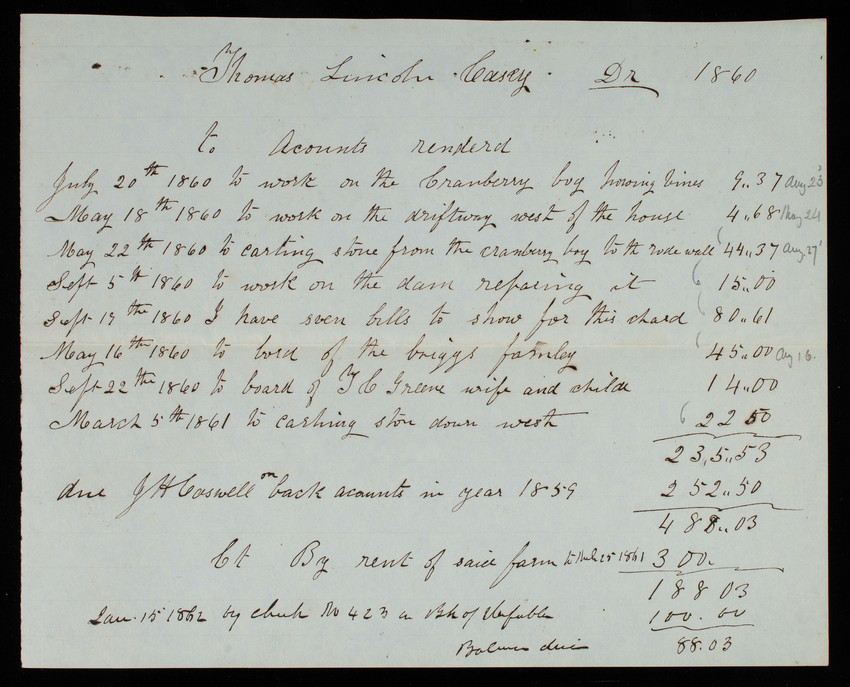 Thomas Lincoln Casey Dr 1860
to Acounts renderd
July 20th 1860 to work on the Cranberry bog howing vines 9..37 Aug 23
May 18th 1860 to work on the driftway west of the house 4..68 May 24
May 22th 1860 to carting stone from the cranberry bog to th rode wall 44..37 Aug. 27
Sept 5th 1860 to work on the dam reparing it 15..00
Sept 19the 1860 I have seven bills to show for this chard 80..61
May 16th 1860 to bord of the briggs famley 45..00 Ag 16.
Sept 22the 1860 to board of T C Greene wife and childe 14..00
March 5th 1861 to carting ston down west 22 50
235..53
due J H Caswell on back acounts in year 1859 252..50
488..03
Ct By rent of said farm to 25 1861 300.
188 03
Jan. 15 1862 by check No 423 on Bk of 100.00
Balance due 88.03